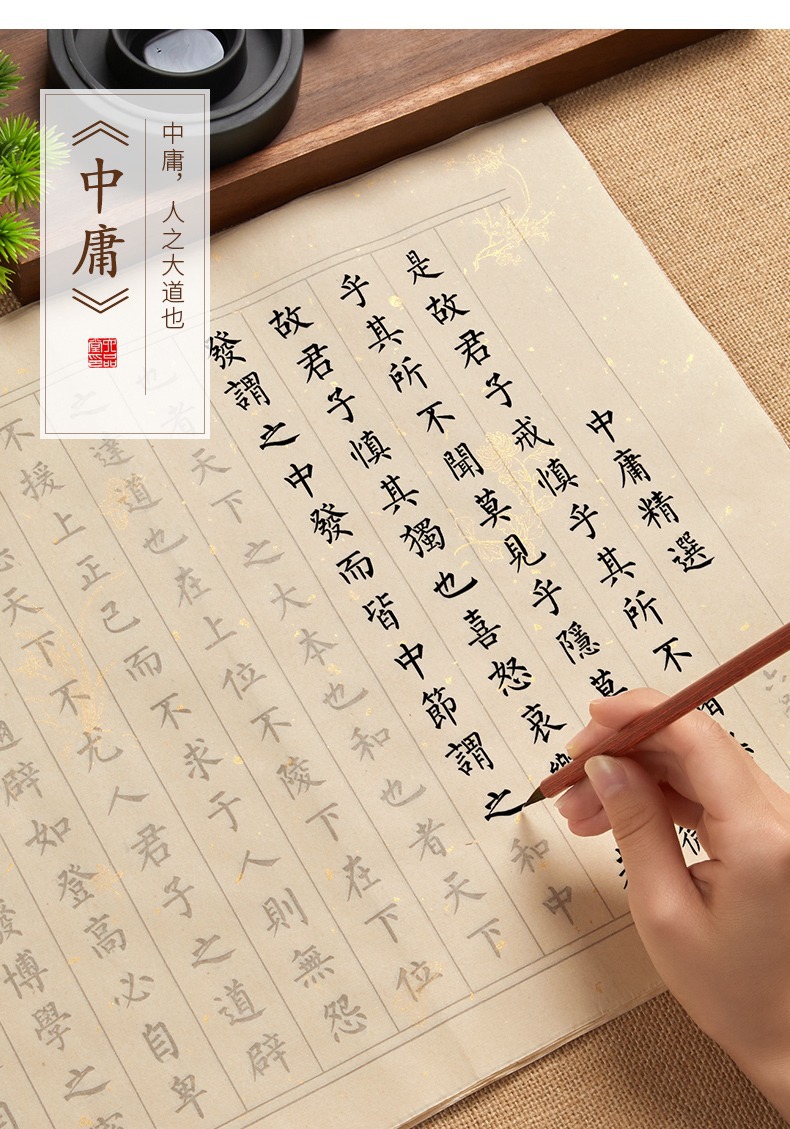 《中庸》
中庸，人之大道也
中庸精選
是故君子戒慎乎其所不
乎其所不聞莫見乎隱莫
故君子慎其獨也喜怒哀
發謂之中發而皆中節謂之和中
也者天下之大本也和也者天下
之達道也在上位不陵下在下位
不援上正己而不求于人則無怨
天下不尤人君子之道辟
辟如登高必自卑
博學之